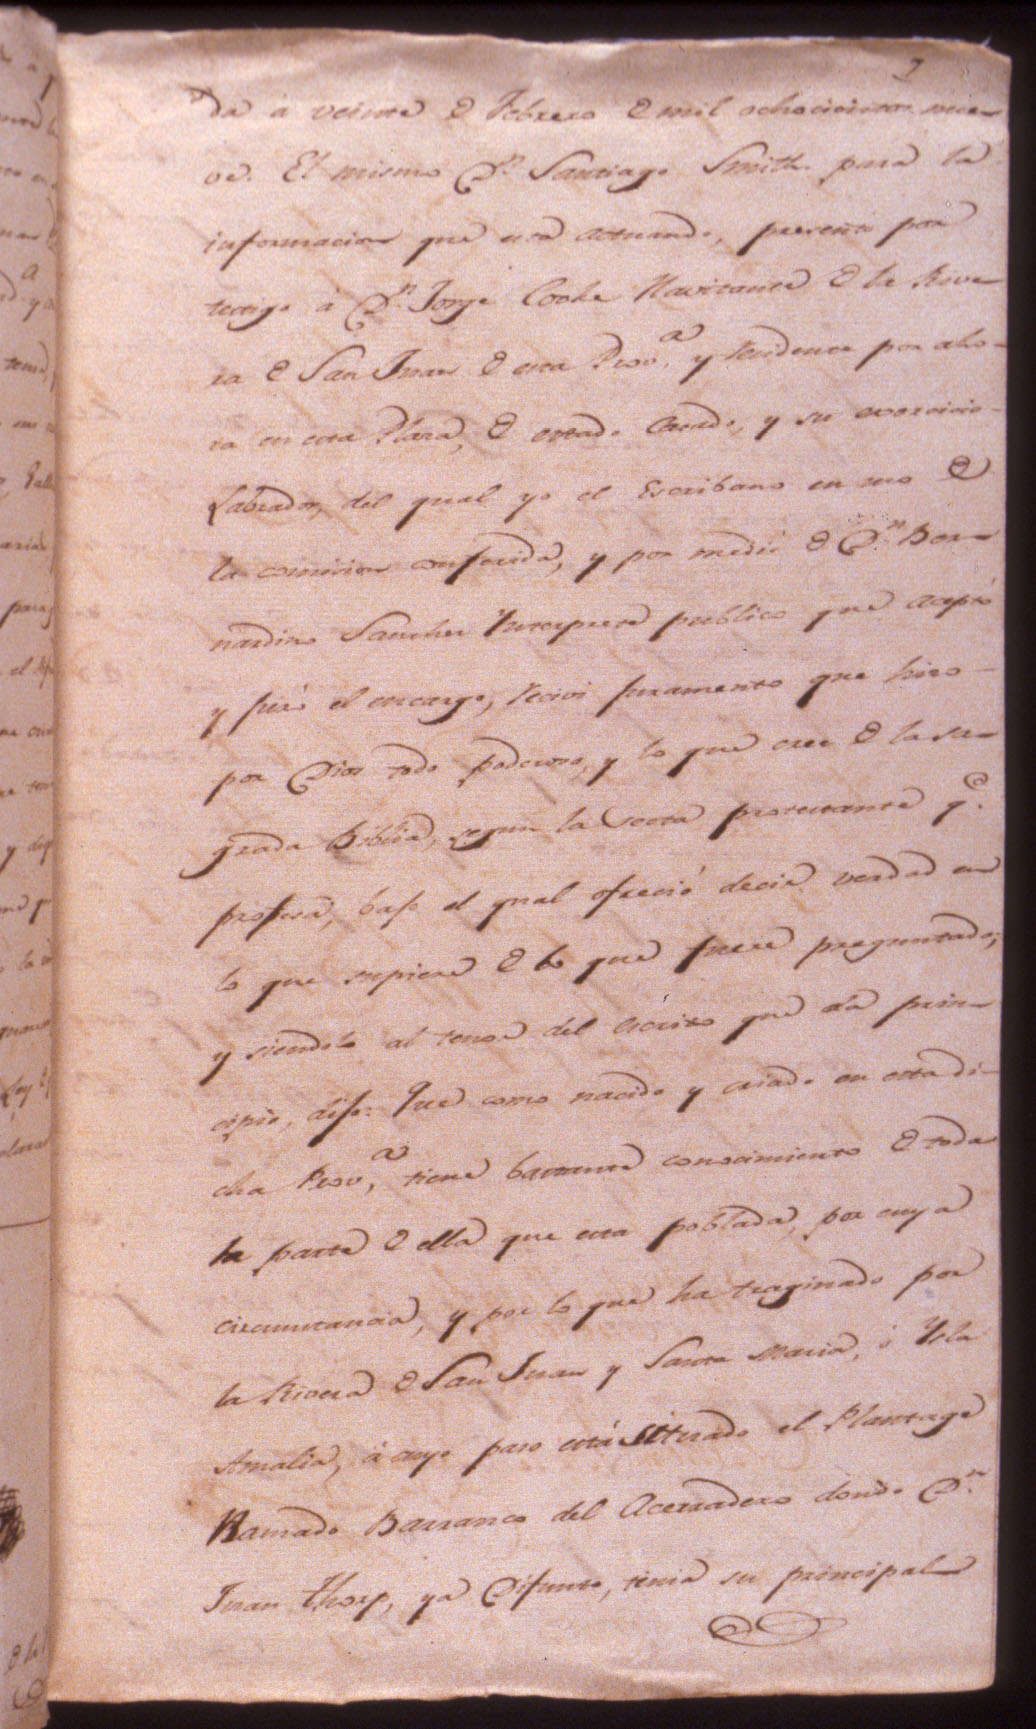 da á veinte de Febrero de mil ochocientos nue-
ve. El mismo Dn. Santiago Smith para la
informacion que está actuando, presentó por
testigo á Dn. Jorge Cooke Havitante de la Rive-
ra de San Juan de esta Prova. y residente por aho-
ra en esta Plaza, de estado Casado, y su exercicio
Labrador, del qual yo el Escribano en uso de
la comision conferida, y por medio de Dn. Ber-
nardino Sanchez Ynterprete publico que aceptó
y juró el encargo, recivi juramento que hizo
por Dios todo poderoso, y lo que cree de la sa-
grada Biblia, segun la secta protestante qe.
profesa, bajo el qual ofreció decir verdad en
lo que supiere de lo que fuere preguntado;
y siendolo al tenor del escrito que da prin-
cipio, dijo: Que como nacido y criado en esta di-
cha Prova, tiene bastante conocimiento de toda
la parte de ella que está poblada, por cuya
circunstancia, y por lo que ha traginado por
la Rivera de San Juan y Santa Maria, ó Ysla
Amalia, á cuyo paso está situado el Plantage
llamado Barranco del Acerradero donde Dn.
Juan Thorp, ya Difunto, tenia su principal